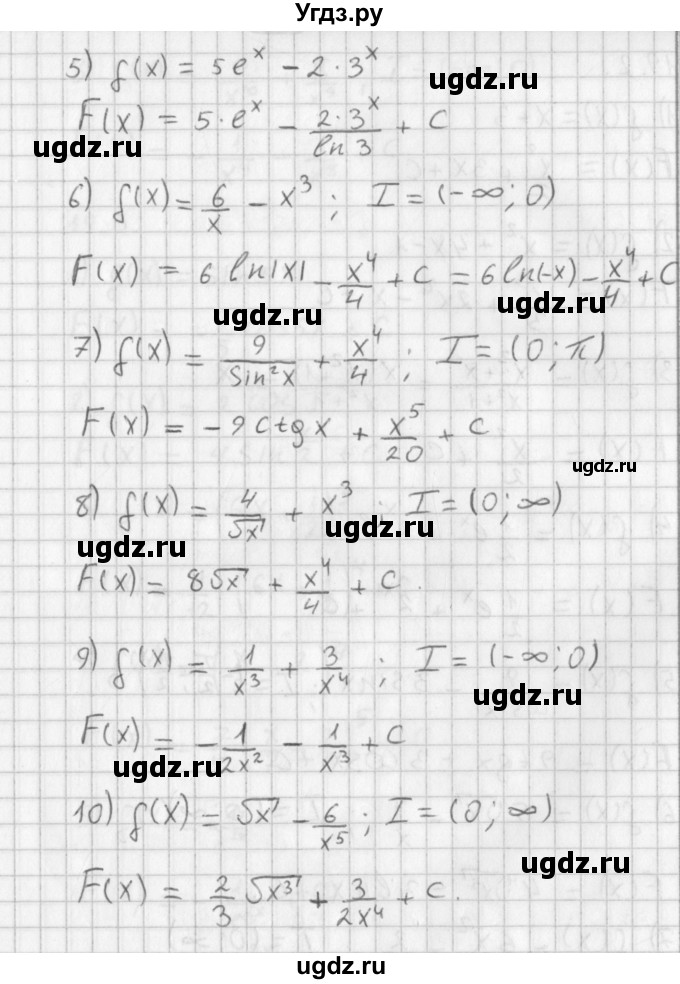 Угдз.ру
5) f(x) = 5e^x − 2·3^x
ugdz.ru
F(x) = 5·e^x − \frac{2·3^x}{ln 3} + C
ugdz.ru
6) f(x) = \frac{6}{x} − x^3 ; I = (−∞; 0)
F(x) = 6 ln|x| − \frac{x^4}{4} + C = 6 ln(−x) − \frac{x^4}{4} + C
ugdz.ru ugdz.ru
7) f(x) = \frac{9}{Sin^2 x} + \frac{x^4}{4} ; I = (0; π)
F(x) = −9 ctg x + \frac{x^5}{20} + C
ugdz.ru
8) f(x) = \frac{4}{√x} + x^3 ; I = (0; ∞)
ugdz.ru ugdz.ru
F(x) = 8√x + \frac{x^4}{4} + C.
9) f(x) = \frac{1}{x^3} + \frac{3}{x^4} ; I = (−∞; 0)
ugdz.ru
F(x) = −\frac{1}{2x^2} − \frac{1}{x^3} + C
ugdz.ru
10) f(x) = √x − \frac{6}{x^5} ; I = (0; ∞)
ugdz.ru
F(x) = \frac{2}{3} √x^3 + \frac{3}{2x^4} + C.
ugdz.ru